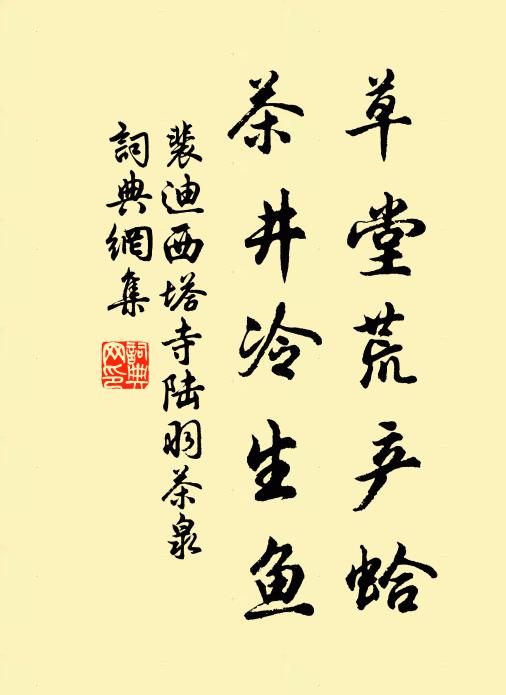 草堂荒产蛤
茶井冷生鱼
裴迪西塔寺陆羽茶泉
詞典網集
詞典網印